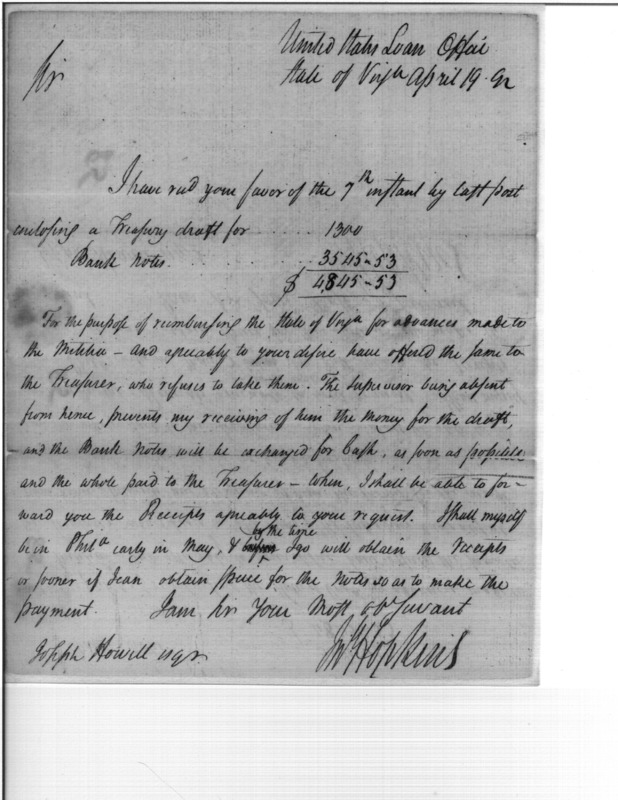 United States Loan Office
Sir
State of Virga April 19. 92
I have recd your favor of the 7th instant by last post
enclosing a Treasury draft for ..... 1300
Bank Notes. ........ 3545-53
$ 4845-53
For the purpose of reembursing the State of Virga for advances made to
the Militia - and agreeably to your desire have offered the same to
the Treasurer, who refuses to take them. The Supervisor being absent
from hence, prevents my receiving of him the money for the draft,
and the Bank Notes will be exchanged for Cash, as soon as possible
and the whole paid to the Treasurer - when, I shall be able to for-
ward you the Receipts agreeably to your request. I shall myself
by the time
be in Phila early in May, & I go will obtain the receipts
or sooner if I can obtain specie for the notes so as to make the
payment. I am Sir Your Most obt Servant
Jno Hopkins
Joseph Howell esqr